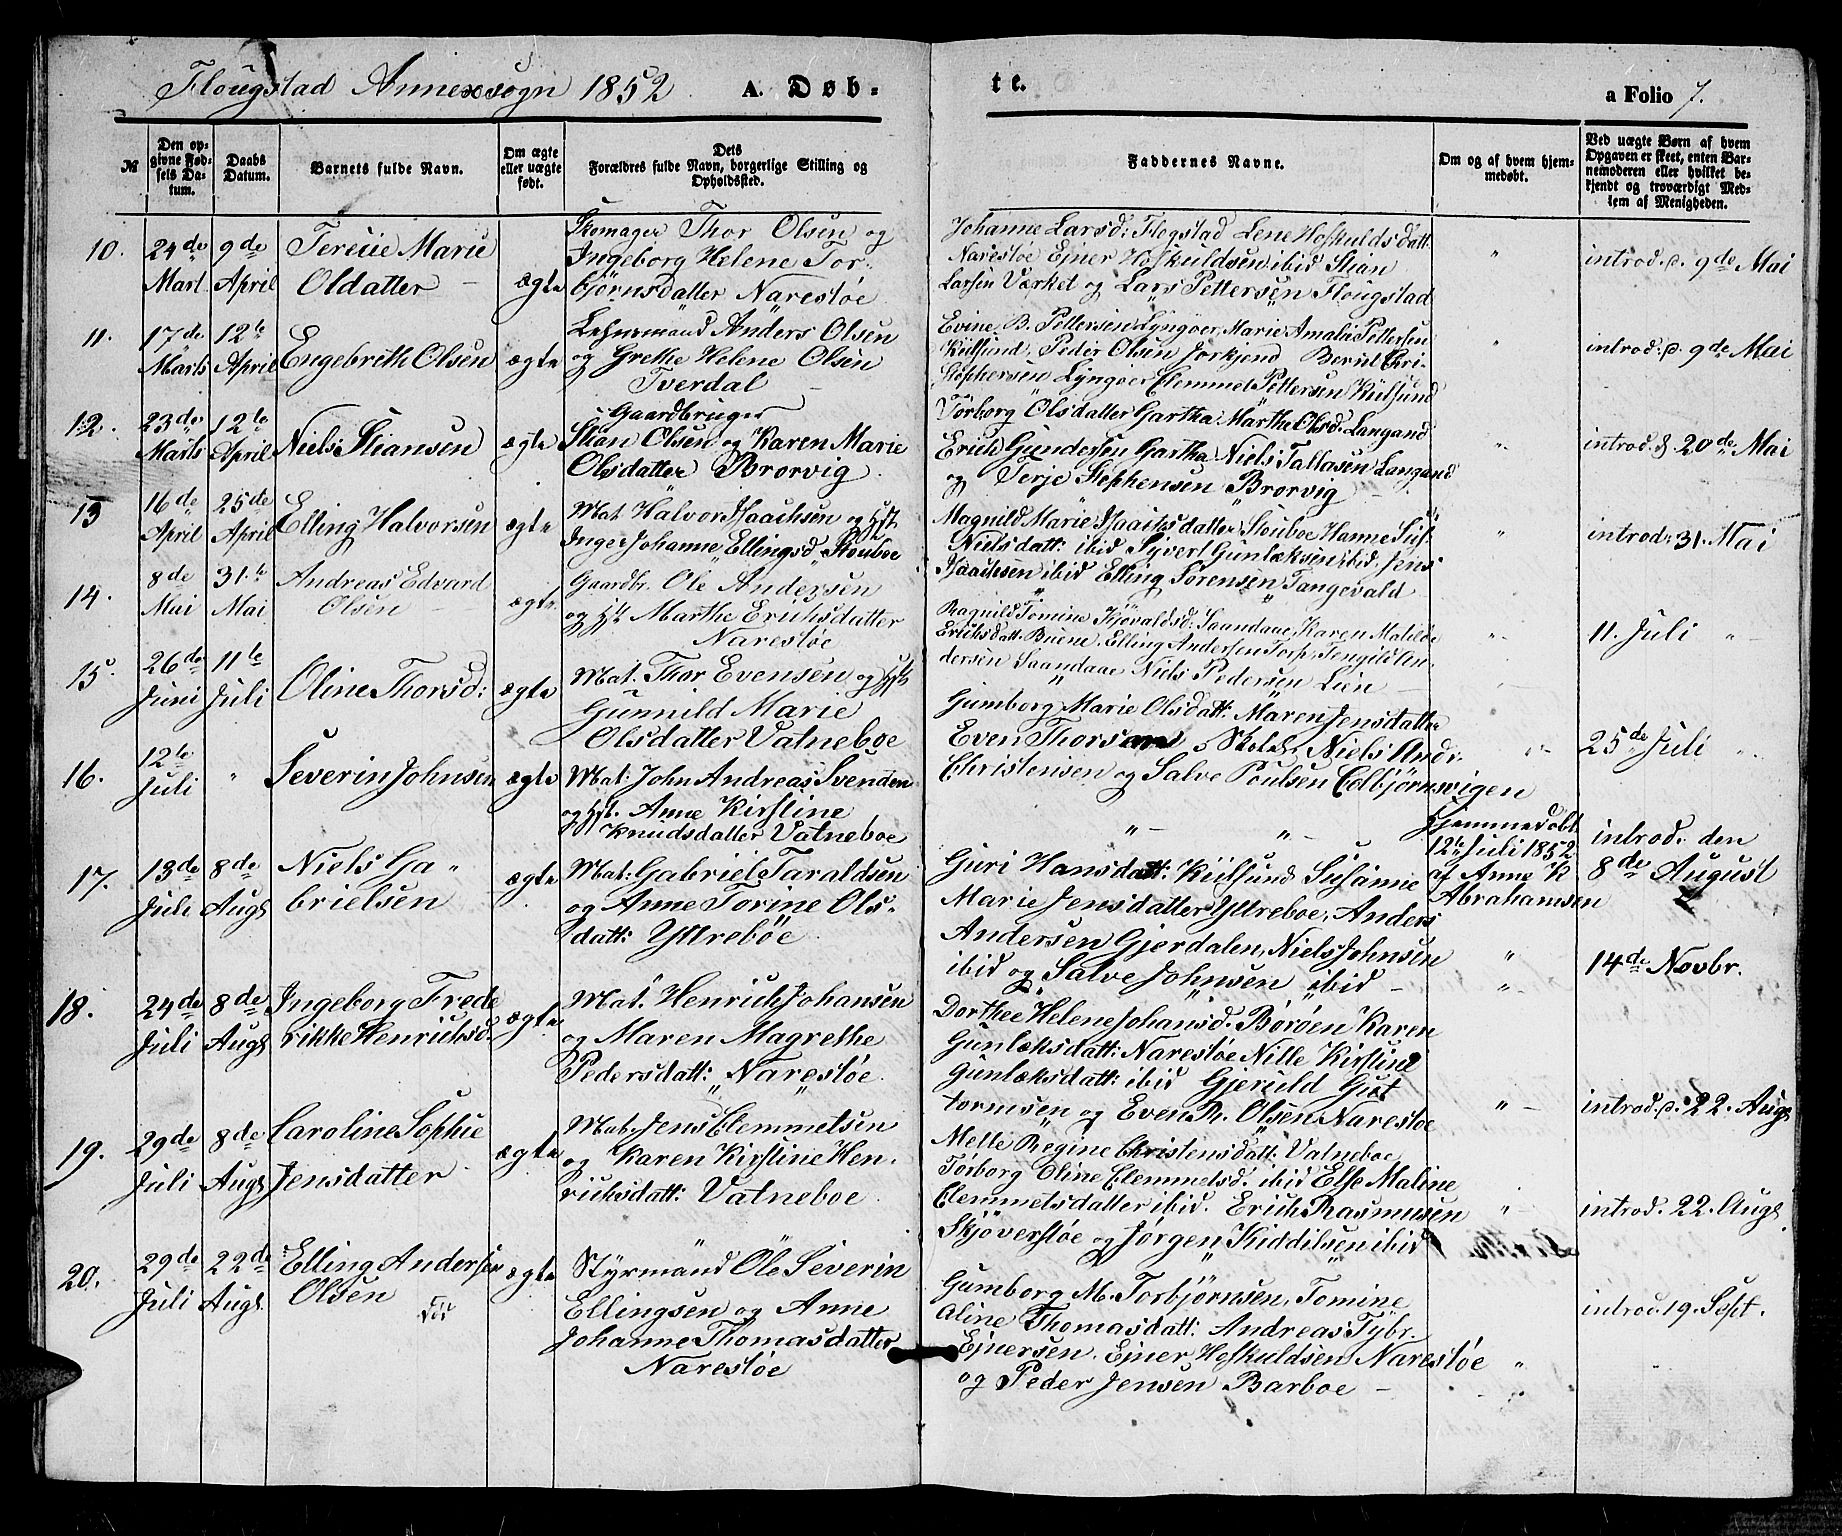 Flougstad Annexsogn 1852 A. Døb-
te.
a Folio 7.
№
Den op-
givne Fød-
sels Da-
tum.
Daabs
Datum.
Barnets fulde Navn.
Om ægte
eller uægte
født.
Dets
Forældres fulde Navn, borgerlige Stilling og
Opholdssted.
Faddernes Navne.
Om og af hvem hjem-
medøbt.
Ved uægte Børn af hvem
Opgaven er skeet, enten Bar-
nemoderen eller hvilket be-
kjendt og troværdigt Med-
lem af Menigheden.
10.
24de
Mart
9de
April
Marie
Oldatter
ægte
Skomager Thor Olsen og
Ingeborg Helene Tor-
bjørnsdatter Narestøe
Johanne Larsd: Flogstad Lene Hofkuldsdatt
Narestøe Ejner Hofkuldsen ibid Stian
Larsen Værket og Lars Pettersen Flougstad
"
introd. d. 9de Mai
11.
17de
Marts
12te
April
Engebreth Olsen
ægte
Lehnsmand Anders Olsen
og Grethe Helene Olsen
Tverdal
Evine B. Pettersen Lyngøer, Marie Amalie Pettersen
Kiilsund, Peder Olsen Jorkjend Bernt Chri-
stophersen Lyngøer Clemmet Pettersen Kiilsund
"
introd: d. 9de Mai
12.
23de
Marts
12te
April
Niels Stiansen
ægte
Gaardbruger
Stian Olsen og Karen Marie
Olsdatter Brorvig
Torborg Olsdatter Gartha Marthe Olsd. Langand
Erich Gundersen Gartha Niels Tallasen Langand
og Terje Stephensen Brorvig
"
introd. d 20de Mai
13
16de
April
25de
April
Elling Halvorsen
ægte
Mat. Halvor Isaachsen og Hst
Inger Johanne Ellingsd. Skouboe
Magnild Marie Isaachsdatter Skouboe Hanne Sus
Nielsdatt: ibid Syvert Gunlæksen ibid. Jens
Isaachsen ibid Elling Sørensen Tangevald
"
introd: 31. Mai
14.
8de
Mai
31.te
Mai
Andreas Edvard
Olsen
ægte
Gaardbr. Ole Andersen
og Hst Marthe Erichsdatter
Narestøe
Ragnild Tomine Kjøvaldsd: Saandaae, Karen Matilde
Erichsdatt: Buene, Elling Andersen Torp, Tengild An-
dersen Saandaae Niels Pedersen Lien
"
11. Juli
15.
26de
Juni
11te
Juli
Oline Thorsd:
ægte
Mat. Thor Evensen og Hst
Gunnild Marie
Olsdatter Vatneboe
Gumborg Marie Olsdatt: Maren Jensdatter
Even Thorsen Niels Andr.
Christensen og Salve Poulsen Edbjørnsvigen
"
25de Juli
16.
12te
Juli
"
Severin Johnsen
ægte
Mat: John Andreas Svendsen
og Hst. Anne Kirstine
Knudsdatter Vatneboe
" "
Hjemmedøbt
12te Juli 1852
af Anne K
Abrahamsen
introd. den
8de August
17.
13de
Juli
8de
Augs
Niels Ga-
brielsen
ægte
Mat: Gabriel Taraldsen
og Anne Torine Ols-
datt: Yttrebøe
Guri Hansdatt: Kiilsund Susanne
Marie Jensdatter Yttreboe, Anders
Andersen Gjerdalen, Niels Johnsen
ibid og Salve Johnsen ibid
"
14de Novbr.
18.
24de
Juli
8de
Augs
Ingeborg Frede
rikke Henrichsd.
ægte
Mat. Henrich Johansen
og Maren Magrethe
Pedersdatt: Narestøe
Dorthee Helene Johansd. Borøen Karen
Gunlæksdatt: Narestøe Nille Kirstine
Gunlæksdatt: ibid Gjeruld Gut
tormsen og Even R. Olsen Narestøe
"
introd. d. 22. Augs
19.
29de
Juli
8de
Augs
Caroline Sophie
Jensdatter
ægte
Mat. Jens Clemmetsen
og Karen Kirstine Hen-
richsdatt: Vatneboe
Mette Regine Christensdatt: Vatneboe
Torborg Oline Clemmetsd. ibid Else Maline
Clemmetsdatter ibid. Erich Rasmusen
Skjøverstøe og Jørgen Kiddilsen ibid
"
introd. 22. Augs
20.
29de
Juli
22de
Augs
Elling Andersen
Olsen
ægte
Styrmand Ole Severin
Ellingsen og Anne
Johanne Thomasdatter
Narestøe
Gumborg M. Torbjørnsen, Tomine
Aline Thomasdatt: Andreas Tybr.
Ejnersen, Ejner Hofkuldsen Narestøe
og Peder Jensen Barboe
"
introd. 19. Sept.